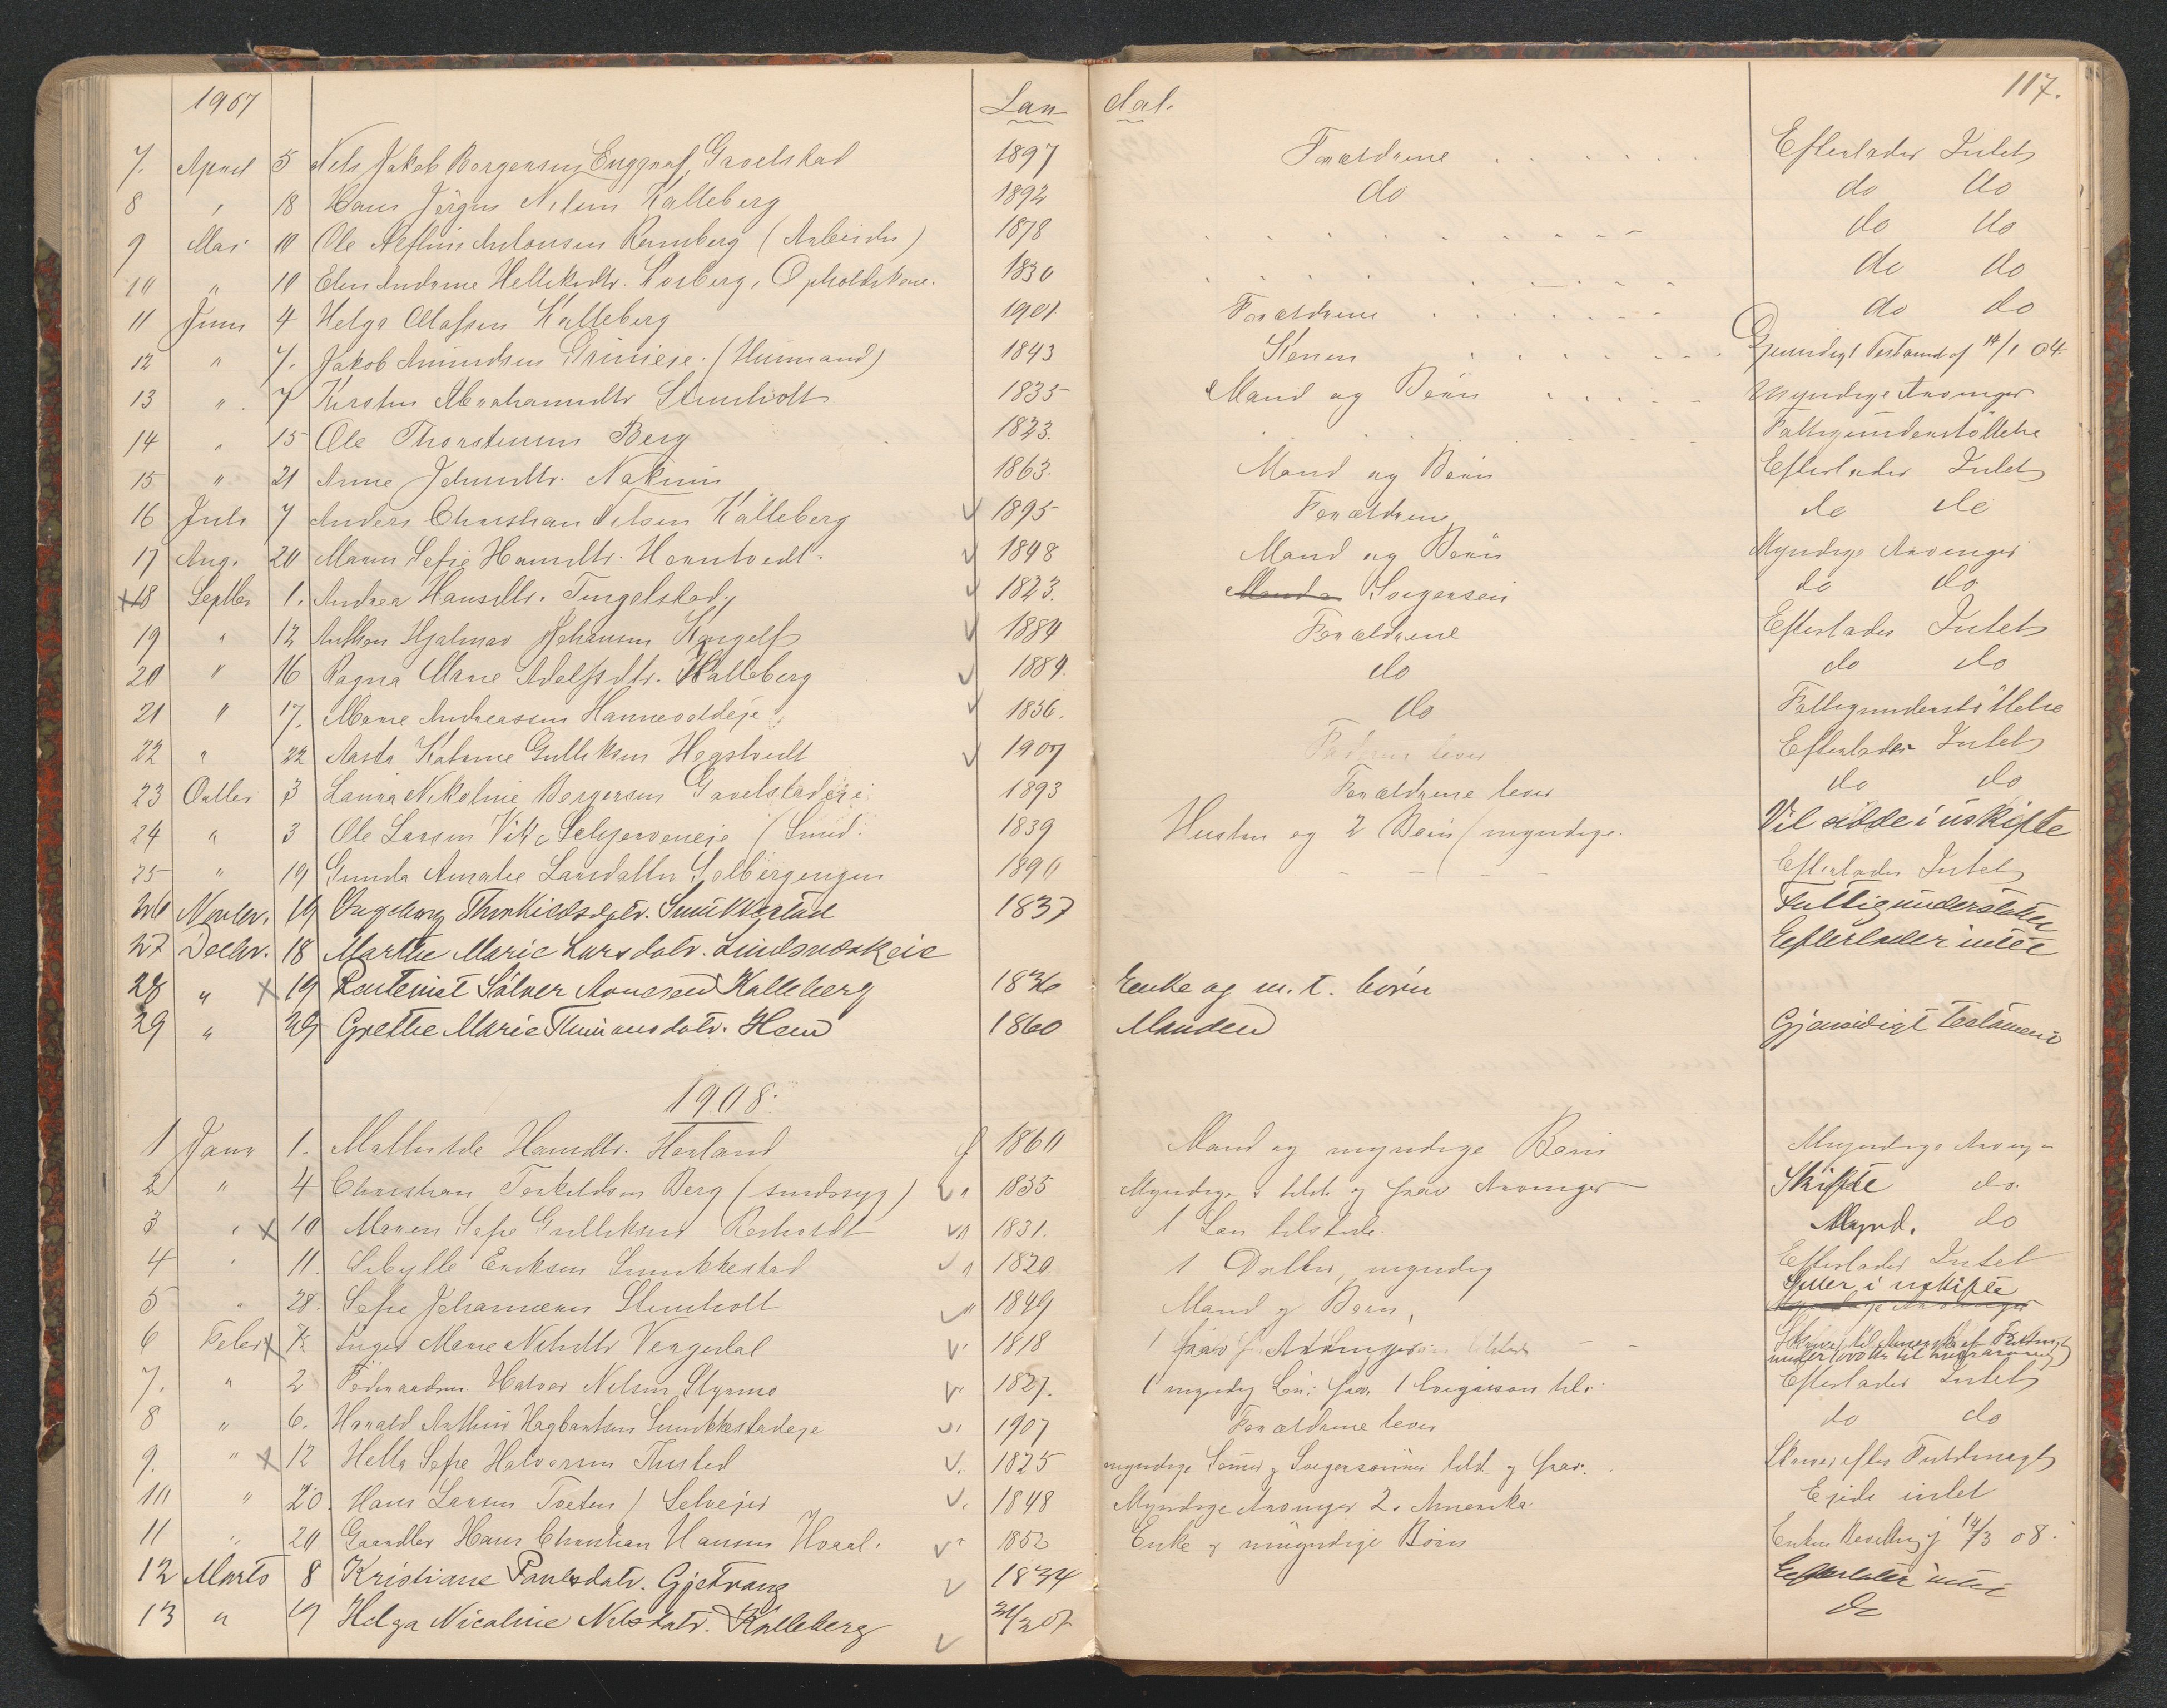 1907 Lan- dal. 117.
7. April 5 Nels Jakob Borgersen Enggraf, Gavelstad 1897 Forældrene Efterlader Intet
8 " 18 Hans Jörgen Nilsen Kalleberg 1892 do do do
9 Mai 10 Ole Antonsen Ramberg (Arbeider) 1878 do do
10 " 10 Elen Andrine Helliksdtr. Kosberg, 1830 do do
11 Juni 4 Helga Olafsen Kalleberg 1901 Forældrene do do
12 " 7. Jakob Amundsen (Husmand) 1843 Konen Gjensidigt Testament af 14/1 04.
13 " 7 Kirsten Abrahamsdtr Stenholt 1835 Mand og Börn Myndige Arvinger
14 " 15 Ole Thorstensen Berg 1823. Fattigunderstöttelse
15 " 21 Anne Johnsdtr. Nakrim 1863. Mand og Börn Efterlader Intet
16 Juli 7 Anders Christian Nilsen Kalleberg 1895 Forældrene do do
17 Aug. 20 Maren Sofie Hansdtr. Hanntvedt. 1848 Mand og Börn Myndige Arvinger
18 Septbr 1. Andrea Hansdtr. Tingelstad 1823. Svigersön do do.
19 " 12 Anthon Hjalmar Johansen 1884 Forældrene Efterlader Intet
20 " 16 Ragna Marie Adolfsdtr. Kalleberg 1889. do do do
21 " 17. Marie Andreasen Hannevoldeje 1856. do Fattigunderstöttelse
22 " 22 Aasta Katrine Gulliksen Hegstvedt 1907 Faderen lever Efterlader Intet
23 Octber 3 Laura Nikoline Borgersen Gavelstadeje 1893 Forældrene lever do do
24 " 3 Ole Larsen Vik, Schjerveneje (Smed. 1839 Hustru og 2 Börn (myndige. Vil sidde i uskifte
25 " 19 Gunda Amalie Larsdatter Solbergengen 1890 Efterlader Intet
26 Novbr. 19 Ingeborg Thorkildsdatr. Smukkestad 1837 Fattigunderstöttet
27 Decbr. 18 Marthe Marie Larsdatr. Efterlader intet
28 " 19 Rentenist Sölver Kalleberg 1836 Enke og m. t. börn
29 " 29 Grethe Marie Thimansdatr. Hem 1860 Manden Gjensidigt testament
1908.
1 Janr 1. Mathilde Hansdtr. Hertand 1860 Mand og myndige Börn Myndige Arvinger
2 " 4 Christian Torkildsen Berg (sindssyg) 1835 Myndige tilst. og frav. Arvinger Skifte do.
3 " 10 Maren Sofie Gulliksen 1831. 1 Sön tilstede. Mynd. do
4 " 11. Sibylle Eriksen Smukkestad 1820 1 Datter, myndig Efterlader Intet
5 " 28. Sofie Johannesen Stenholt 1849 Mand og Börn, Sitter i uskifte
6 Febr Inger Marie Nilsdtr Vergedal 1818 1 frav. Arvinger
7. " 2 Halvor Nilsen Styrmo 1827. 1 myndig Efterlader Intet
8 " 6. Harald Arthur Hagbartsen Smukkestadeje 1907 Forældrene lever do do
9. " 12 Hella Sofie Halvorsen Thusted 1825 myndige Sönner og Svigersönner tilst. og frav. Skriver efter Fuldmagt
10 " 20. Hans Larsen Tveten / Selveier 1848 Myndige Arvinger 2 i Amerika. Ejede intet
11 " 20 Gaardbr Hans Christian Hansen Hvaal. 1852 Enke og umyndige Börn Enken Bevilling af 14/3 08.
12 Marts 8 Kristiane Paulsdatr. Gjetrang 1834 Efterlader intet
13 " 19 Helga Nicoline Nilsdatr. Kalleberg do